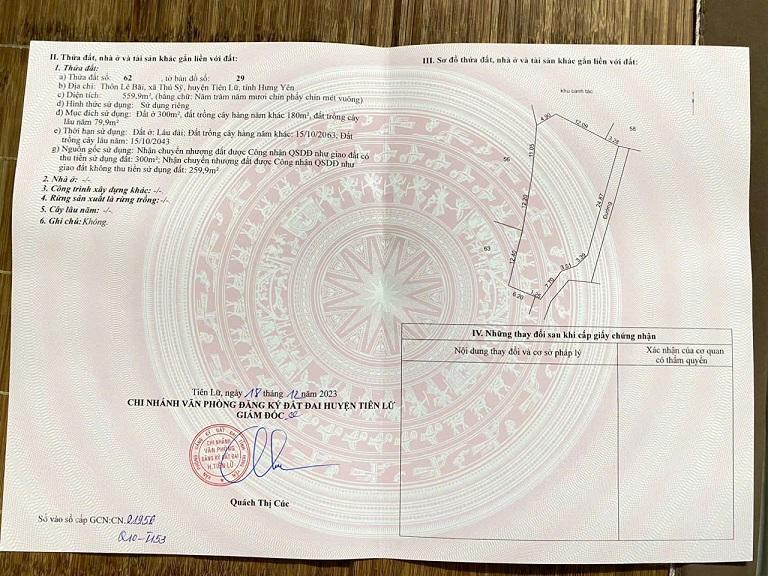 II. Thửa đất, nhà ở và tài sản khác gắn liền với đất:
1. Thửa đất:
a) Thửa đất số: 62 , tờ bản đồ số: 29
b) Địa chỉ: Thôn Lê Bãi, xã Thủ Sỹ, huyện Tiên Lữ, tỉnh Hưng Yên
c) Diện tích: 559,9m², (bằng chữ: Năm trăm năm mươi chín phẩy chín mét vuông)
d) Hình thức sử dụng: Sử dụng riêng
đ) Mục đích sử dụng: Đất ở 300m², đất trồng cây hàng năm khác 180m², đất trồng cây
lâu năm 79,9m²
e) Thời hạn sử dụng: Đất ở: Lâu dài; Đất trồng cây hàng năm khác: 15/10/2063; Đất
trồng cây lâu năm: 15/10/2043
g) Nguồn gốc sử dụng: Nhận chuyển nhượng đất được Công nhận QSDĐ như giao đất có
thu tiền sử dụng đất: 300m²; Nhận chuyển nhượng đất được Công nhận QSDĐ như
giao đất không thu tiền sử dụng đất: 259,9m²
2. Nhà ở: -/-
3. Công trình xây dựng khác: -/-
4. Rừng sản xuất là rừng trồng:-/-
5. Cây lâu năm: -/-
6. Ghi chú:Không.
Tiên Lữ, ngày 18 tháng 12 năm 2023
CHI NHÁNH VĂN PHÒNG ĐĂNG KÝ ĐẤT ĐAI HUYỆN TIÊN LỮ
GIÁM ĐỐC
CHI NHÁNH
VĂN PHÒNG
ĐĂNG KÝ ĐẤT ĐAI
H.TIÊN LỮ
Quách Thị Cúc
Số vào sổ cấp GCN:CN. 01956
Q10-T153
III. Sơ đồ thửa đất, nhà ở và tài sản khác gắn liền với đất:
khu canh tác
4.90
12.09
3.28
58
11.05
56
12.20
24.67
Đường
63
12.40
3.39
3.01
7.70
6.20
IV. Những thay đổi sau khi cấp giấy chứng nhận
Nội dung thay đổi và cơ sở pháp lý
Xác nhận của cơ quan
có thẩm quyền